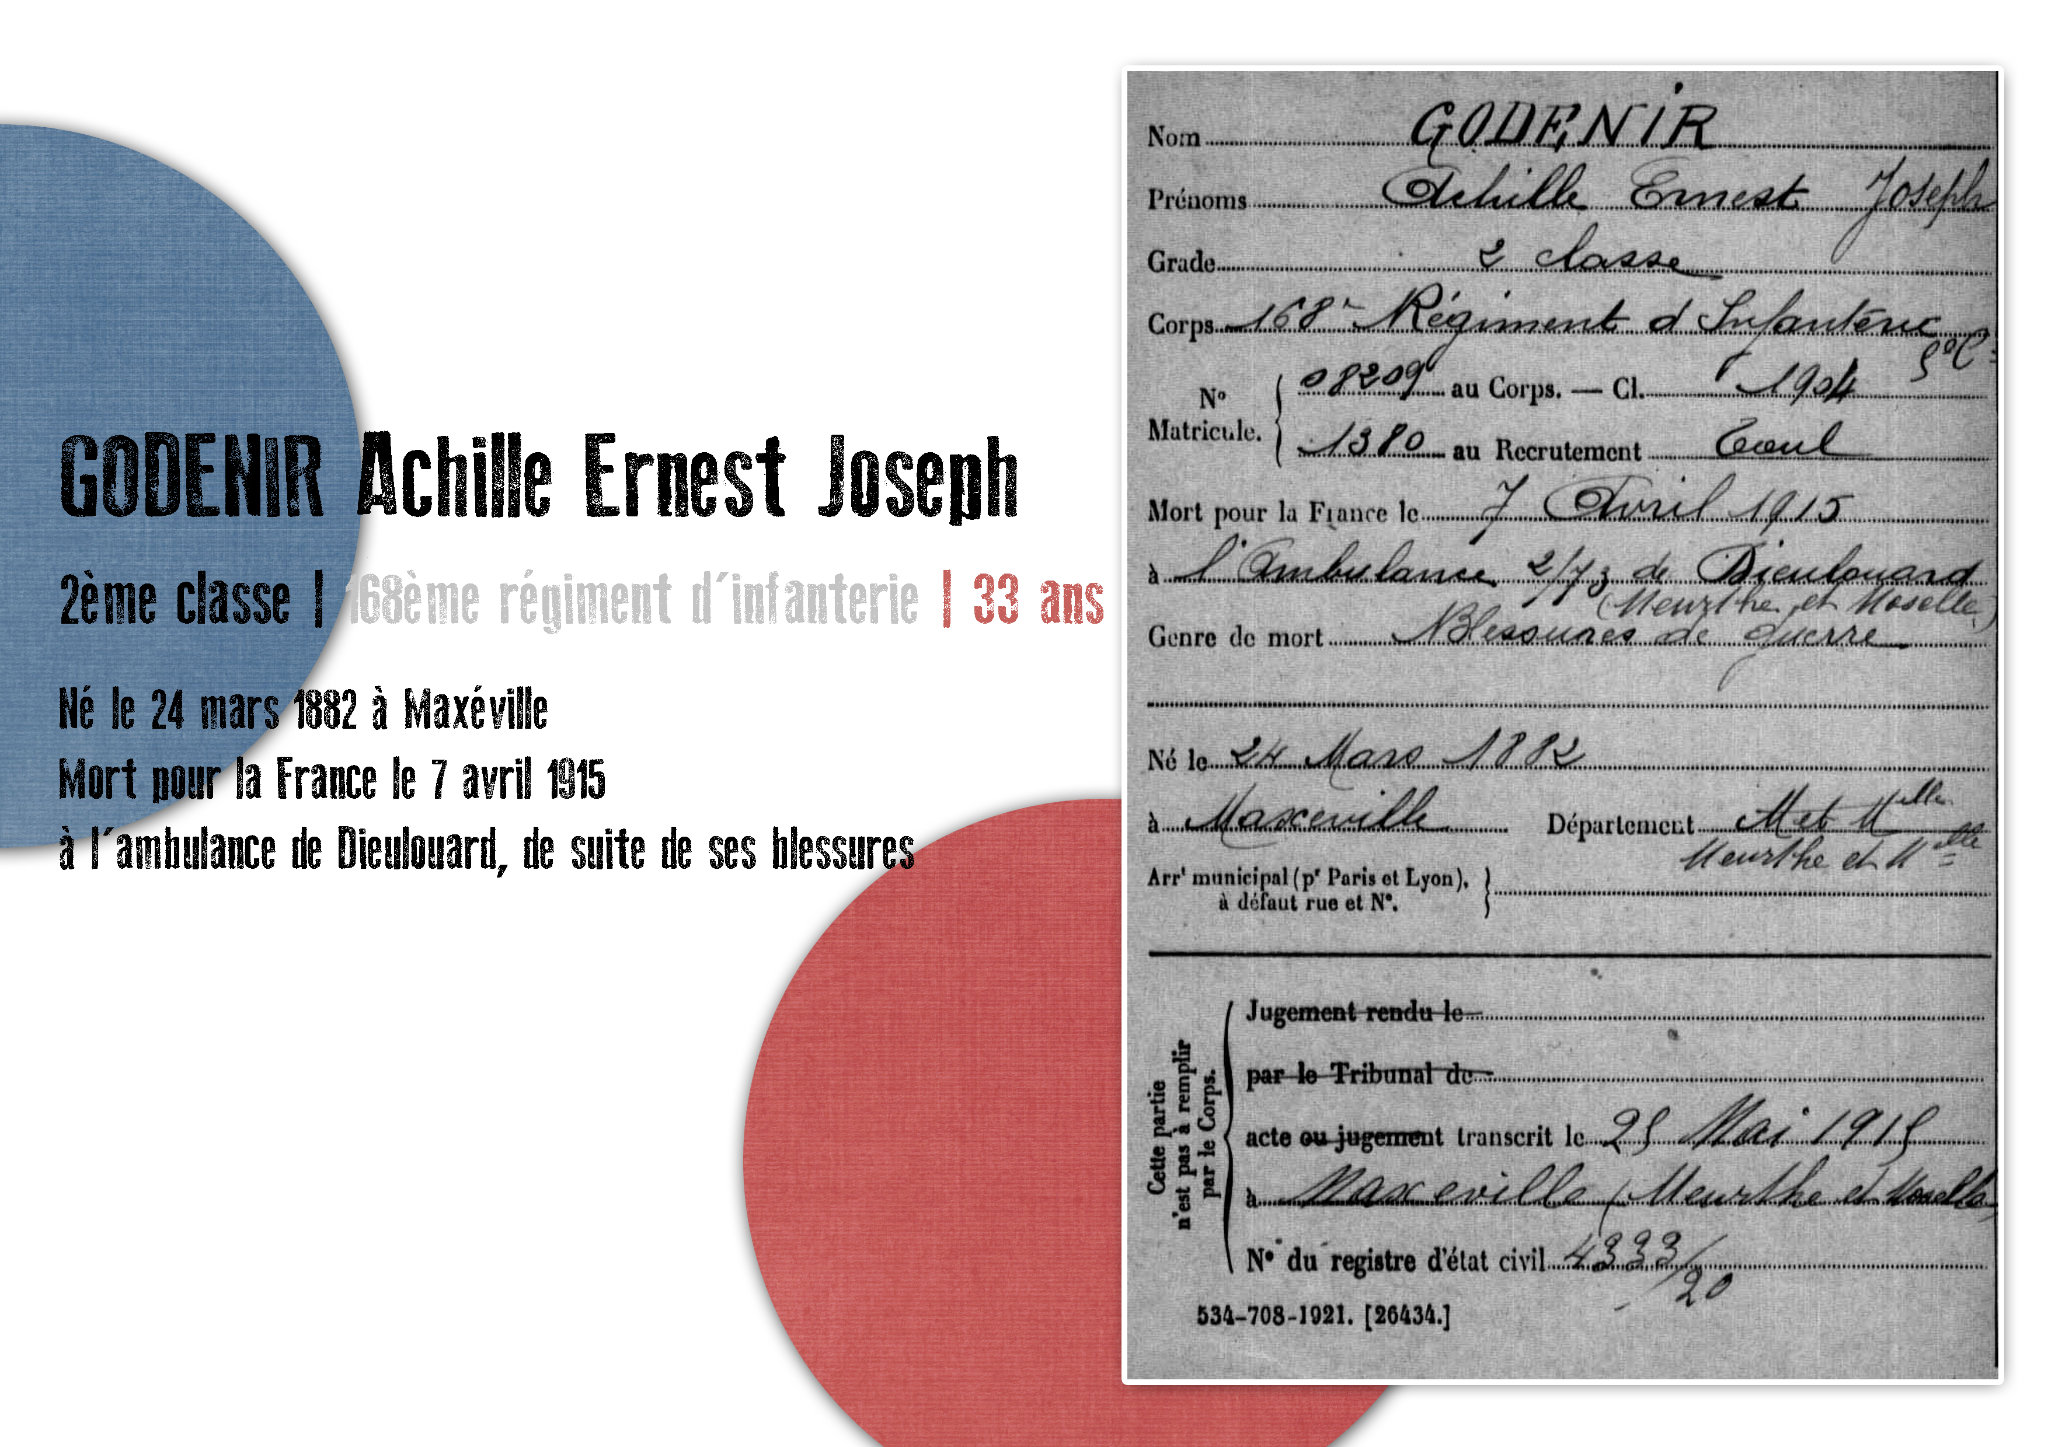 GODENIR Achille Ernest Joseph
2ème classe | 168ème régiment d'infanterie | 33 ans
Né le 24 mars 1882 à Maxéville
Mort pour la France le 7 avril 1915
à l'ambulance de Dieulouard, de suite de ses blessures
Nom GODENIR
Prénoms Achille Ernest Joseph
Grade 2 classe
Corps 168e Régiment d Infanterie
No Matricule. { 08209 au Corps. — Cl. 1904
1380 au Recrutement Toul
Mort pour la France le 7 Avril 1915
à l'Ambulance 2/73 de Dieulouard
(Meurthe et Moselle)
Genre de mort Blessures de guerre
Né le 24 Mars 1882
à Maxeville Département M et Mlle
Meurthe et Mlle
Arrt municipal (pr Paris et Lyon), }
à défaut rue et No.
Cette partie
n'est pas à remplir
par le Corps.
Jugement rendu le
par le Tribunal de
acte ou jugement transcrit le 25 Mai 1915
à Maxeville (Meurthe et Moselle)
No du registre d'état civil 4333/
20
534-708-1921. [26434.]